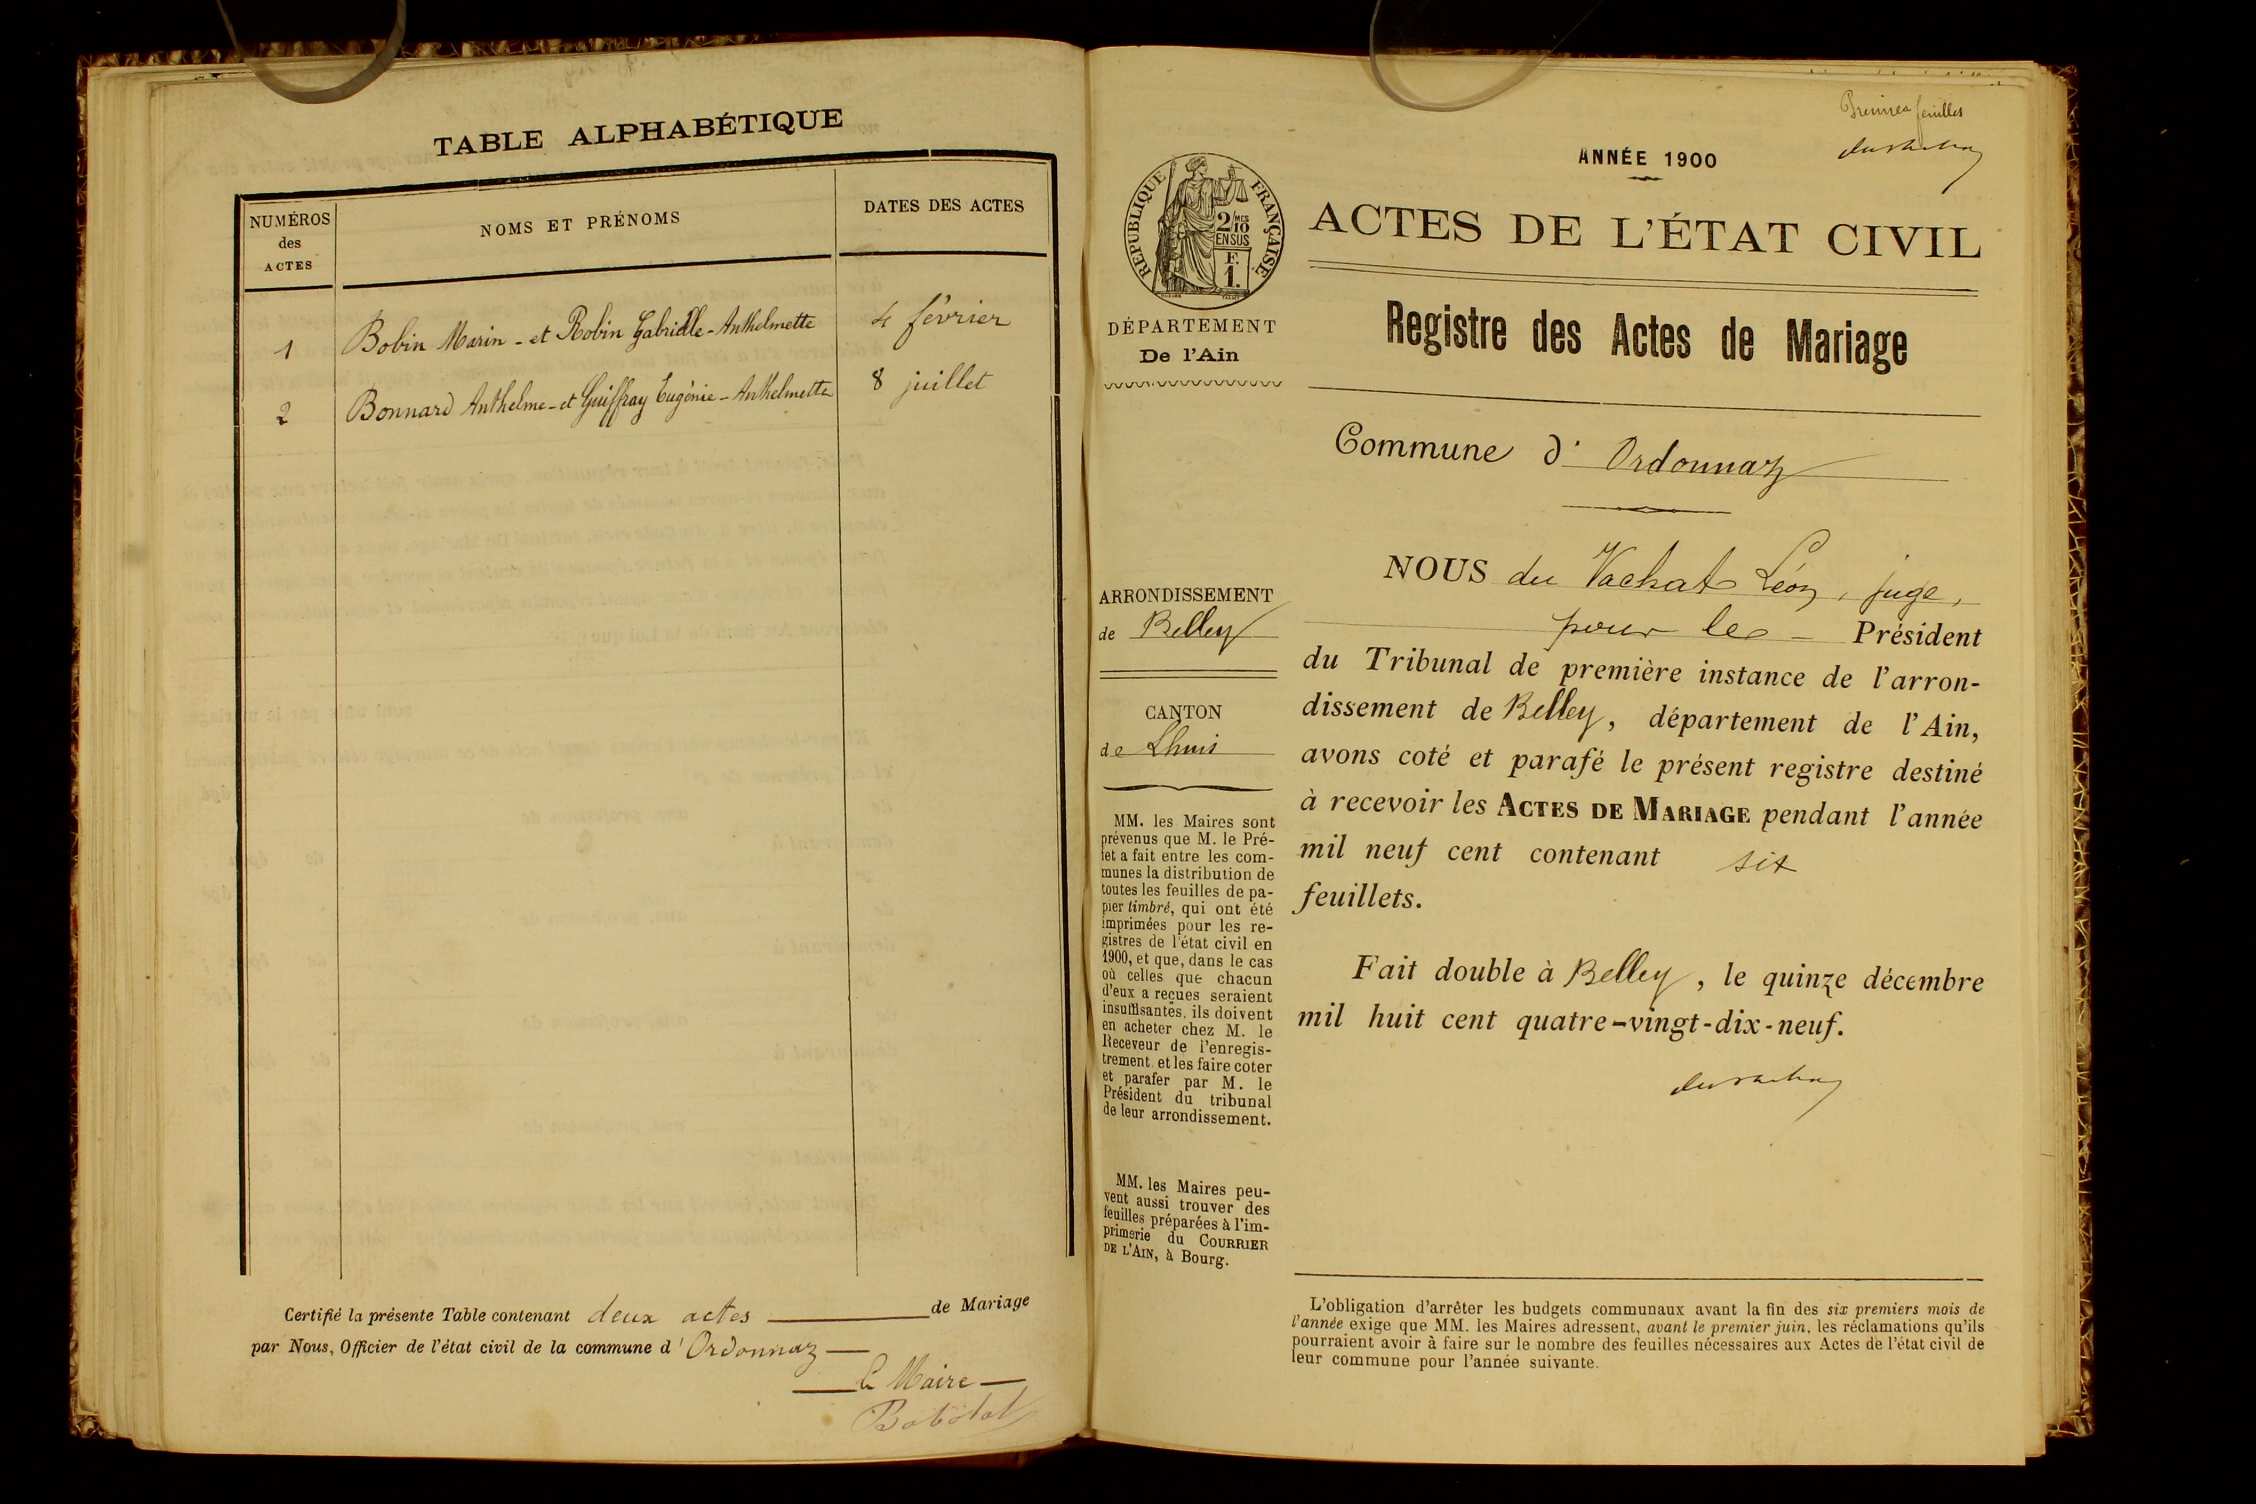 TABLE ALPHABÉTIQUE
NUMÉROS
des
ACTES
NOMS ET PRÉNOMS
DATES DES ACTES
1 Bobin Marin - et Robin Gabrielle - Anthelmette 4 février
2 Bonnard Anthelme - et Guiffray Eugénie - Anthelmette 8 juillet
Certifié la présente Table contenant deux actes de Mariage
par Nous, Officier de l'état civil de la commune d'Ordonnaz
Le Maire
feuilles
ANNÉE 1900
RÉPUBLIQUE FRANÇAISE
2/10 MES
EN SUS
F.
1.
DÉPARTEMENT
De l'Ain
ACTES DE L'ÉTAT CIVIL
Registre des Actes de Mariage
Commune d' Ordonnaz
ARRONDISSEMENT
de Belley
CANTON
de Lhuis
MM. les Maires sont
prévenus que M. le Pré-
fet a fait entre les com-
munes la distribution de
toutes les feuilles de pa-
pier timbré, qui ont été
imprimées pour les re-
gistres de l'état civil en
1900, et que, dans le cas
où celles que chacun
d'eux a reçues seraient
insuffisantes, ils doivent
en acheter chez M. le
Receveur de l'enregis-
trement et les faire coter
et parafer par M. le
Président du tribunal
de leur arrondissement.
MM. les Maires peu-
vent aussi trouver des
feuilles préparées à l'im-
primerie du COURRIER
DE L'AIN, à Bourg.
NOUS du Vachat Léon, juge,
pour le Président
du Tribunal de première instance de l'arron-
dissement de Belley, département de l'Ain,
avons coté et parafé le présent registre destiné
à recevoir les ACTES DE MARIAGE pendant l'année
mil neuf cent contenant six
feuillets.
Fait double à Belley, le quinze décembre
mil huit cent quatre-vingt-dix-neuf.
L'obligation d'arrêter les budgets communaux avant la fin des six premiers mois de
l'année exige que MM. les Maires adressent, avant le premier juin, les réclamations qu'ils
pourraient avoir à faire sur le nombre des feuilles nécessaires aux Actes de l'état civil de
leur commune pour l'année suivante.